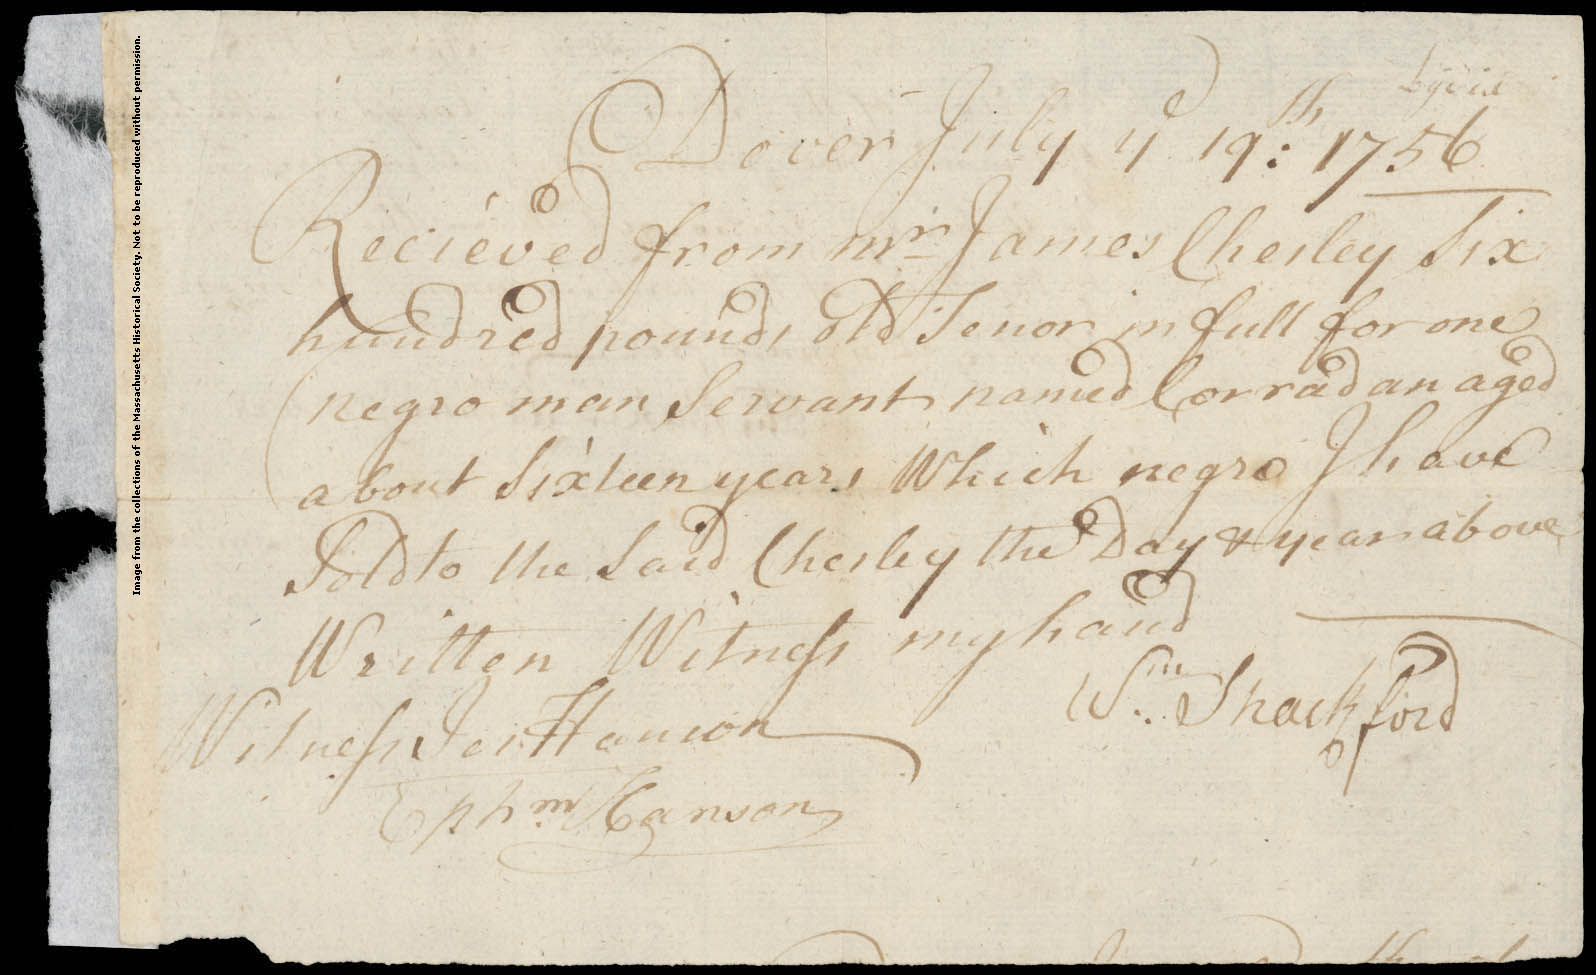 Dover July ye 19th: 1756
Recieved from mr James Chesley Six
hundred pounds old Tenor in full for one
negro man Servant named Corradan aged
about Sixteen years Which negro I have
Sold to the Said Chesley the Day & year above
Written Witness my hand
Wm Shackford
Witness Jos Hanson
Ephm Hanson
Image from the collections of the Massachusetts Historical Society. Not to be reproduced without permission.